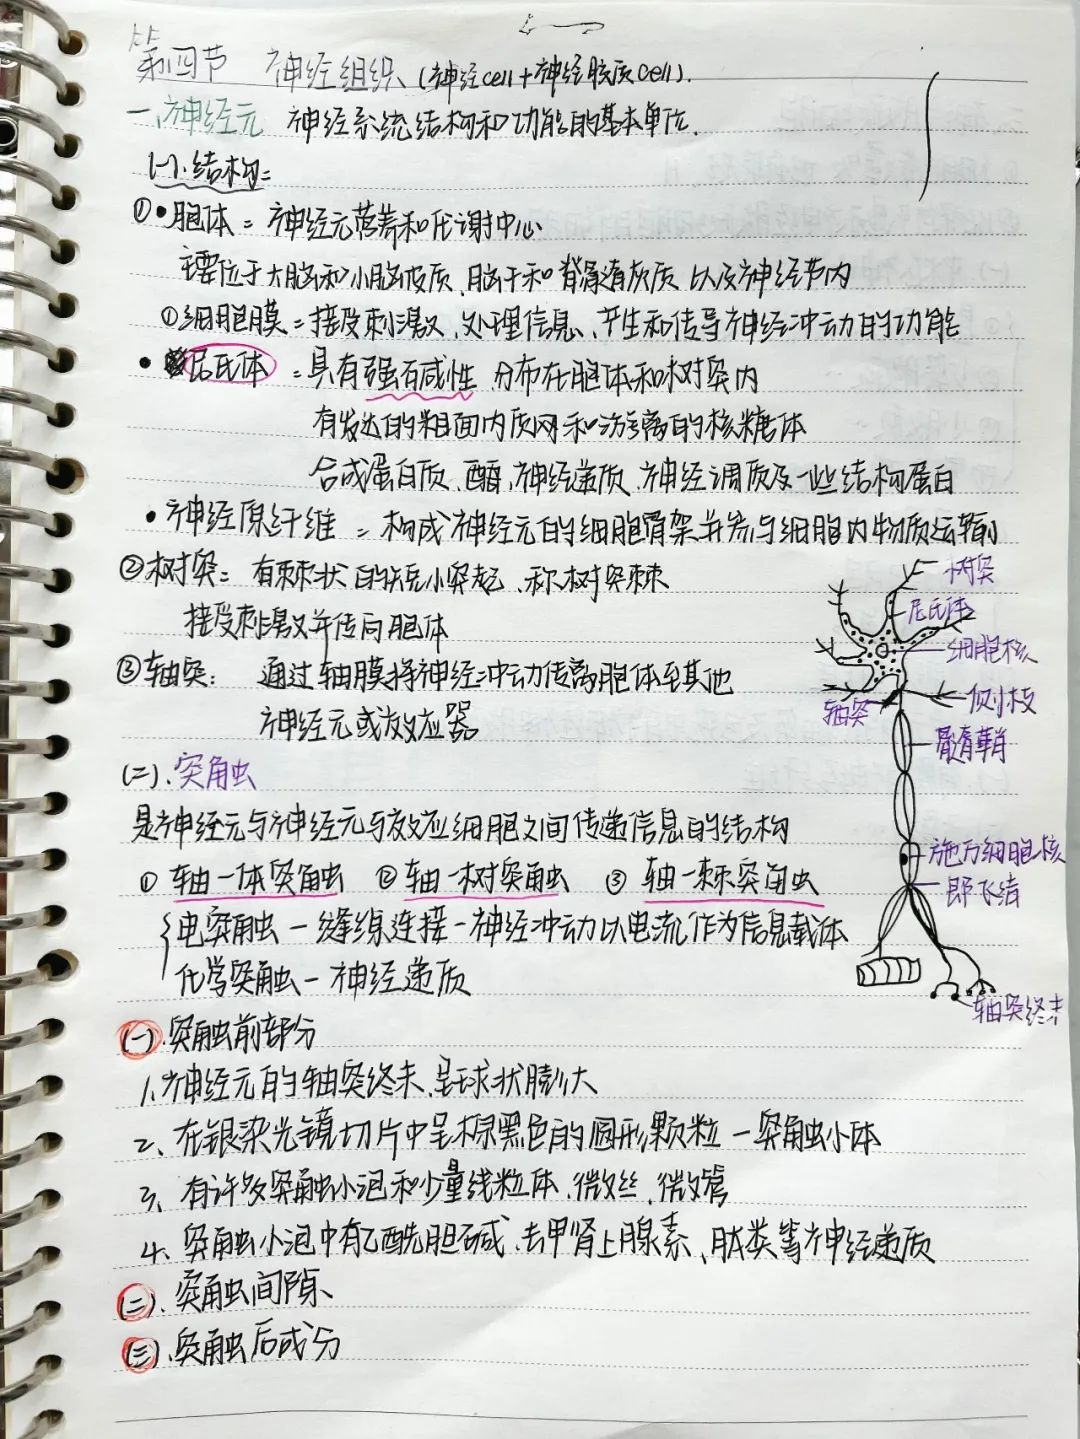 第四节 神经组织 (神经cell+神经胶质cell).
一、神经元 神经系统结构和功能的基本单位.
(一).结构:
①•胞体: 神经元营养和代谢中心
主要位于大脑和小脑皮质、脑干和脊髓灰质 以及神经节内
①细胞膜:接受刺激、处理信息、产生和传导神经冲动的功能
• 尼氏体:具有强碱性 分布在胞体和树突内
有发达的粗面内质网和游离的核糖体
合成蛋白质、酶、神经递质、神经调质及一些结构蛋白
• 神经原纤维:构成神经元的细胞骨架并参与细胞内物质运输
②树突:有棘状的短小突起、称树突棘
接受刺激并传向胞体
③轴突: 通过轴膜将神经冲动传离胞体至其他
神经元或效应器
树突
尼氏体
细胞核
轴突
侧枝
髓鞘
施万细胞核
郎飞结
轴突终末
(二).突触
是神经元与神经元与效应细胞之间传递信息的结构
① 轴一体突触 ② 轴一树突触 ③ 轴一棘突触
电突触一缝隙连接一神经冲动以电流作为信息载体
化学突触一神经递质
(一).突触前部分
1.神经元的轴突终末、呈球状膨大
2、在银染光镜切片中呈棕黑色的圆形颗粒一突触小体
3、有许多突触小泡和少量线粒体、微丝、微管
4、突触小泡中有乙酰胆碱、去甲肾上腺素、肽类等神经递质
(二).突触间隙、
(三).突触后成分